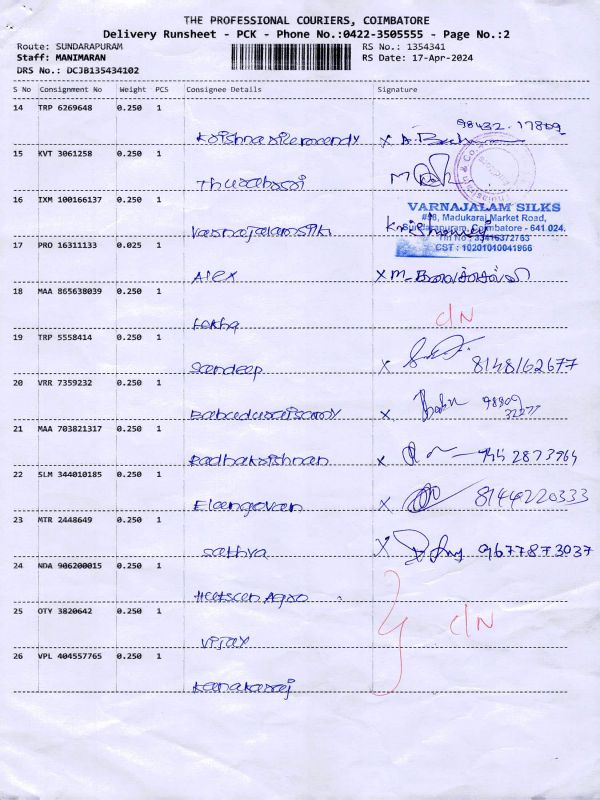 THE PROFESSIONAL COURIERS, COIMBATORE
Delivery Runsheet - PCK - Phone No.:0422-3505555 - Page No.:2
Route: SUNDARAPURAM RS No.: 1354341
Staff: MANIMARAN RS Date: 17-Apr-2024
DRS No.: DCJB135434102
S No Consignment No Weight PCS Consignee Details Signature
14 TRP 6269648 0.250 1
98432.17809
X
15 KVT 3061258 0.250 1
16 IXM 100166137 0.250 1
VARNAJALAM SILKS
#58, Madukarai Market Road,
Sundarapuram, Coimbatore - 641 024.
Tin No : 33416372763
CST : 10201010041966
17 PRO 16311133 0.025 1
Alex X M.
18 MAA 865638039 0.250 1
C/N
19 TRP 5558414 0.250 1
Sandeep X 8148162677
20 VRR 7359232 0.250 1
X
21 MAA 703821317 0.250 1
Radhakrishnan X
22 SLM 344010185 0.250 1
Elangovan X 8144220333
23 MTR 2448649 0.250 1
Sathya X 9677873037
24 NDA 906200015 0.250 1
25 OTY 3820642 0.250 1
C/N
Vijay
26 VPL 404557765 0.250 1
Kanakaraj